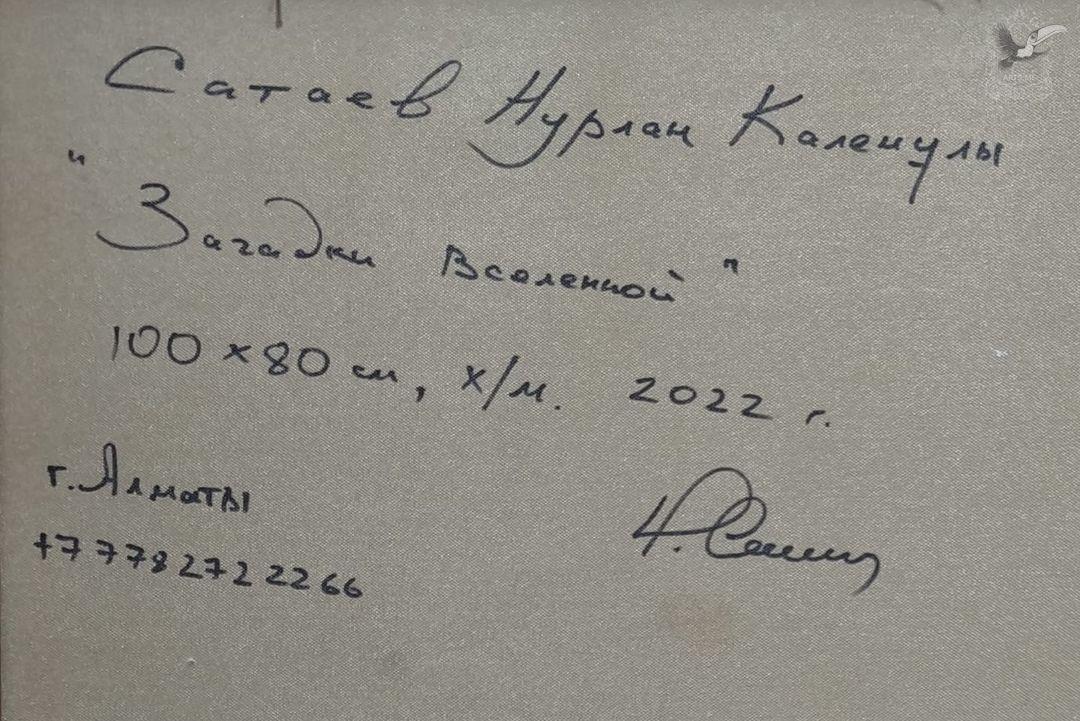 Сатаев Нурлан Каленулы
"Загадки Вселенной"
100 x 80 см, х/м. 2022 г.
г. Алматы
+7 778 272 22 66
ARTS.ME